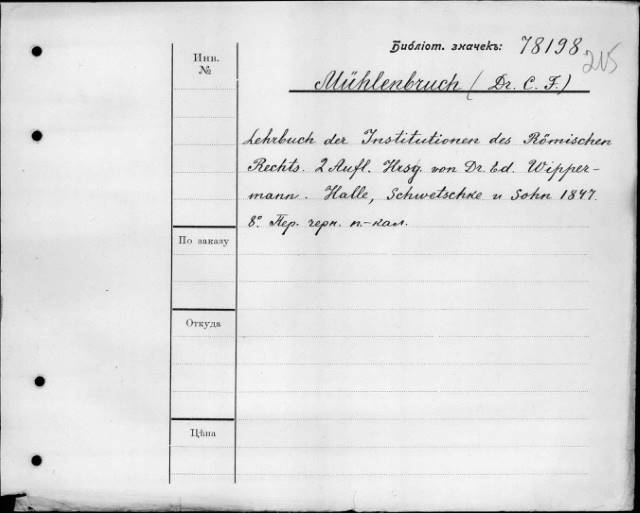 Библіот. значекъ: 78198
215
Инв. №
Mühlenbruch (Dr. C. F.)
Lehrbuch der Institutionen des Römischen
Rechts. 2 Aufl. Hrsg. von Dr. Ed. Wipper-
mann. Halle, Schwetschke u Sohn 1847.
8° Пер. черн. п-кал.
По заказу
Откуда
Цѣна